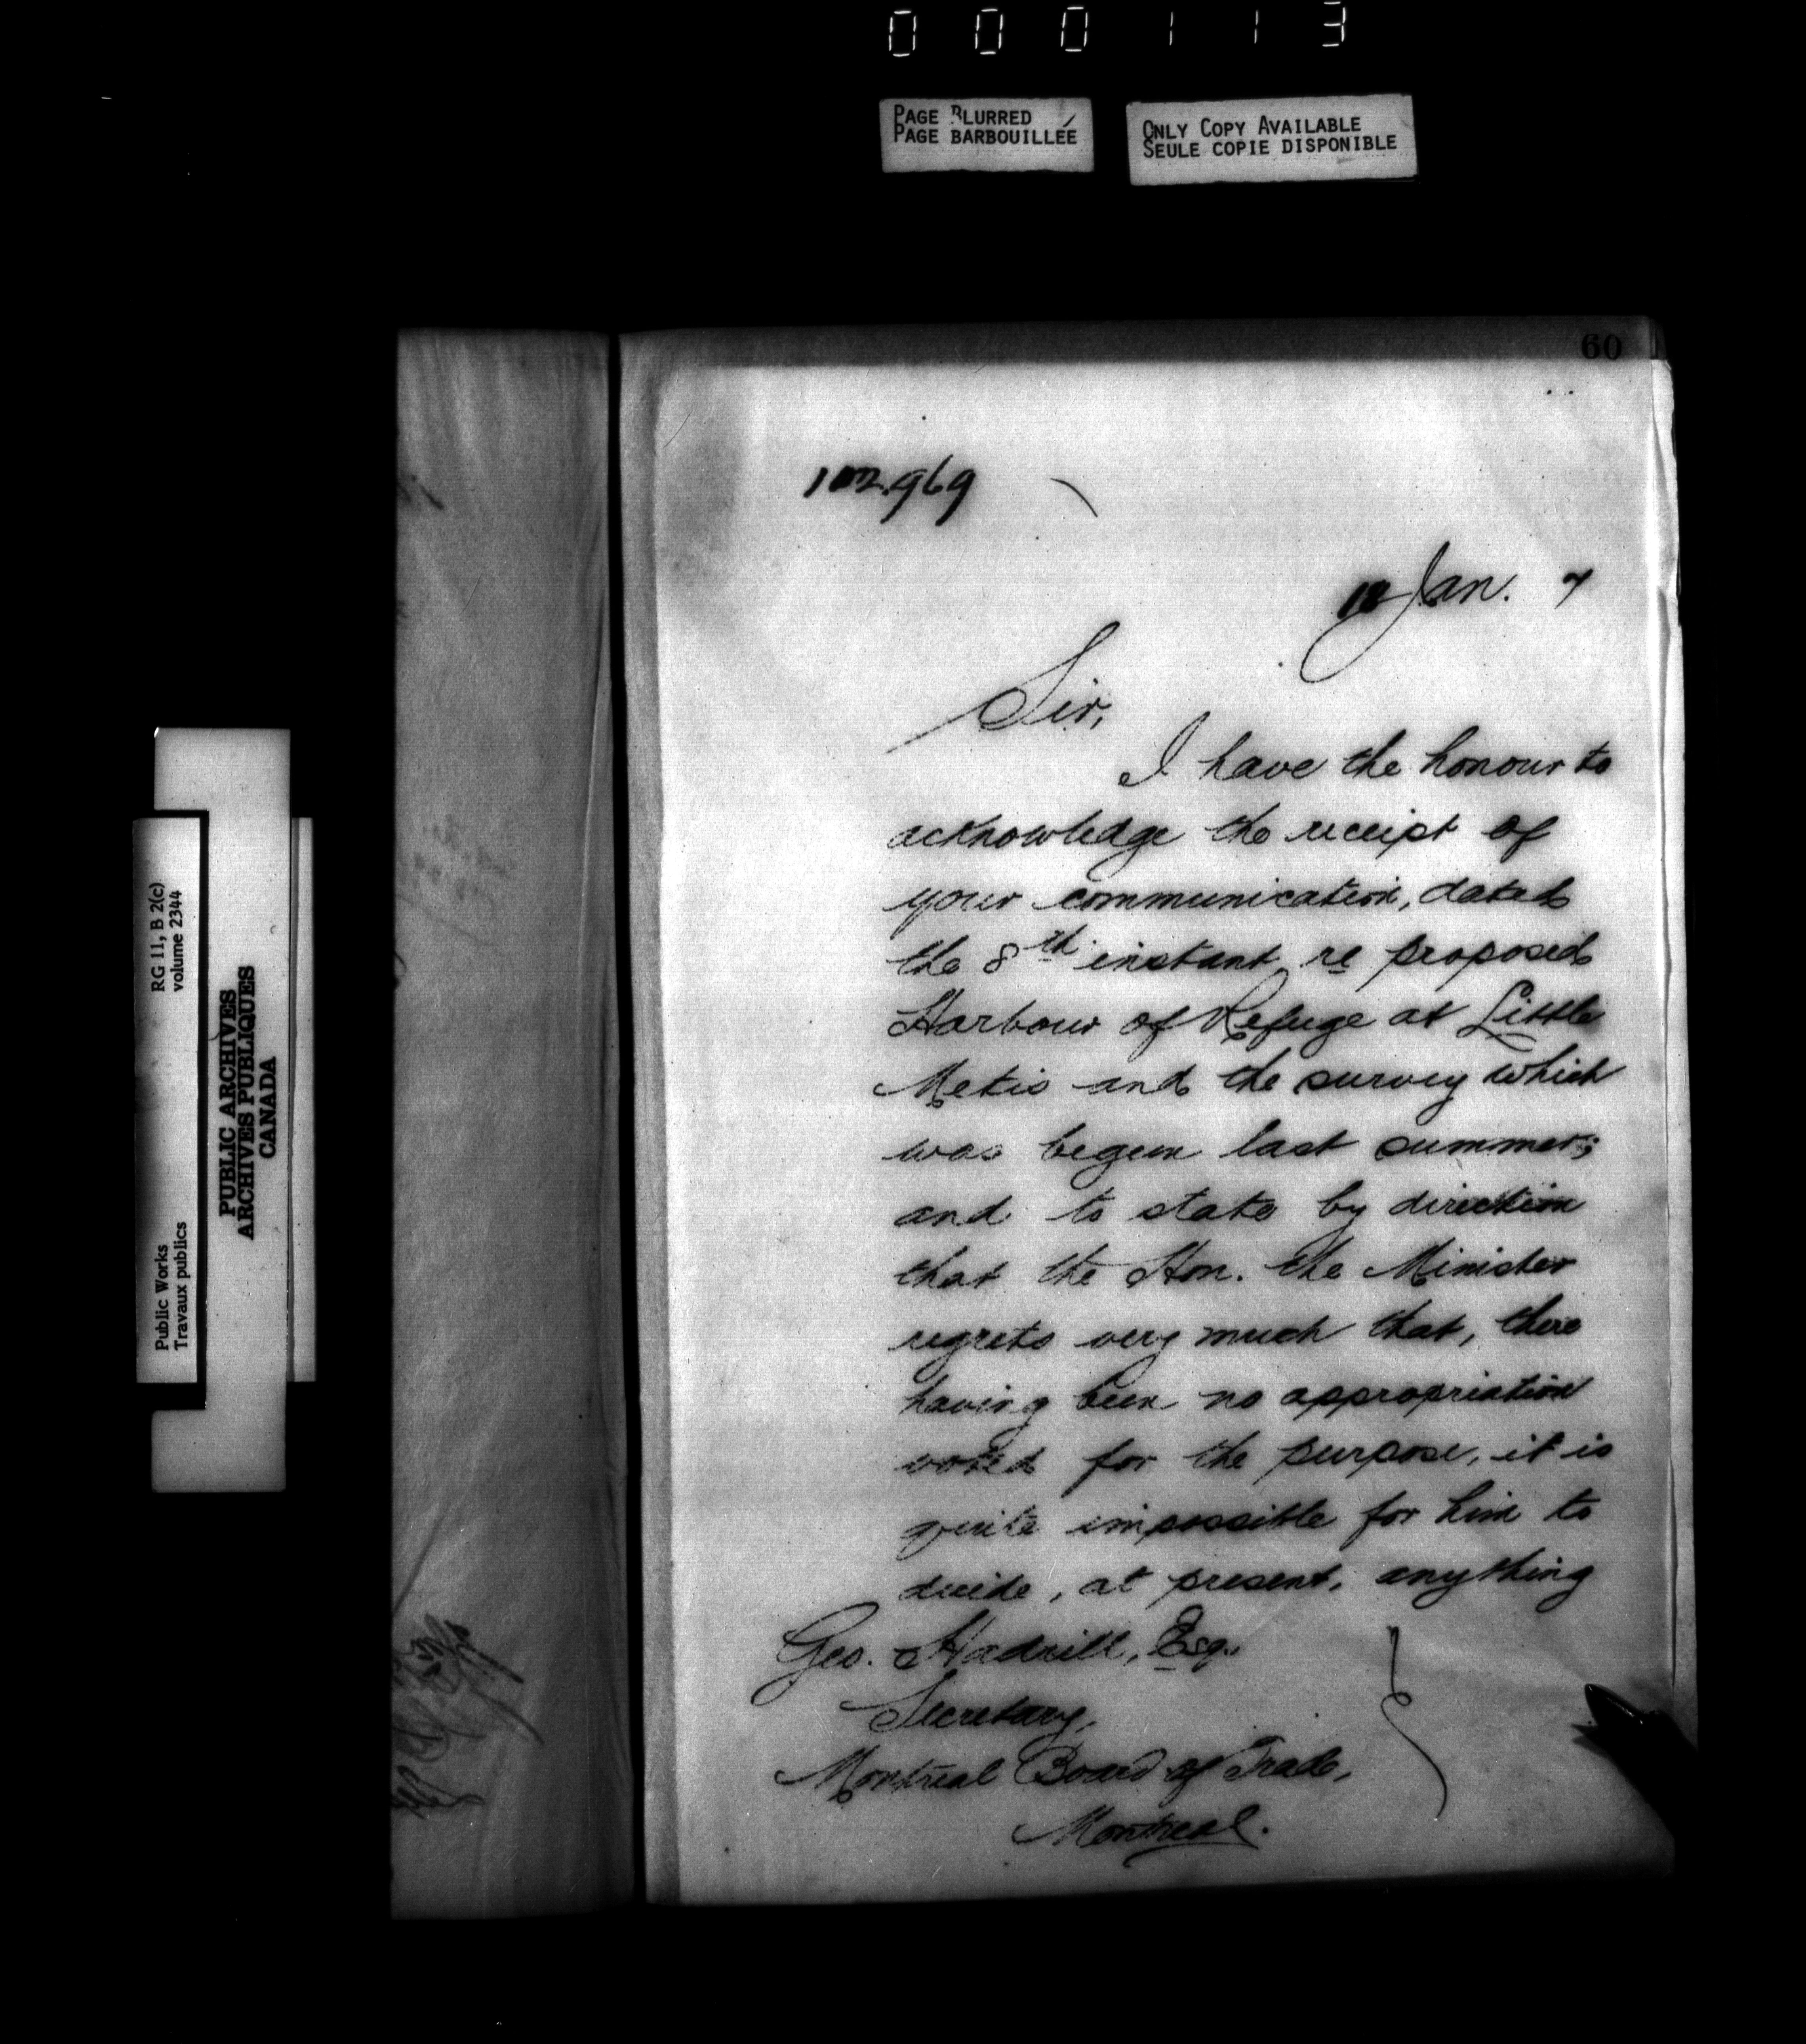 000113
PAGE BLURRED
PAGE BARBOUILLÉE
ONLY COPY AVAILABLE
SEULE COPIE DISPONIBLE
60
102.969
Jan. 7
Sir,
I have the honour to
acknowledge the receipt of
your communication, dated
the 8th. instant re proposed
Harbour of Refuge at Little
Metis and the survey which
was begun last summer;
and to state by direction
that the Hon. the Minister
regrets very much that, there
having been no appropriation
voted for the purpose, it is
quite impossible for him to
decide, at present, anything
Geo. Hadrill, Esq.
Secretary,
Montreal Board of Trade,
Montreal.
RG 11, B 2(c)
volume 2344
Public Works
Travaux publics
PUBLIC ARCHIVES
ARCHIVES PUBLIQUES
CANADA